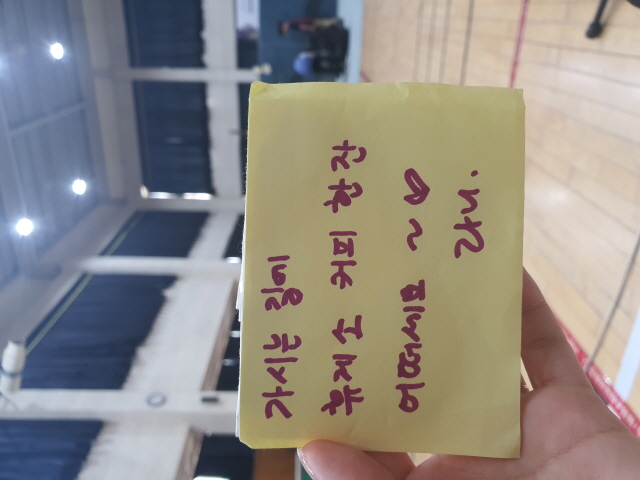 가시는 길에
휴게소 커피 한 잔
어떠세요 ~ ♡
라니.